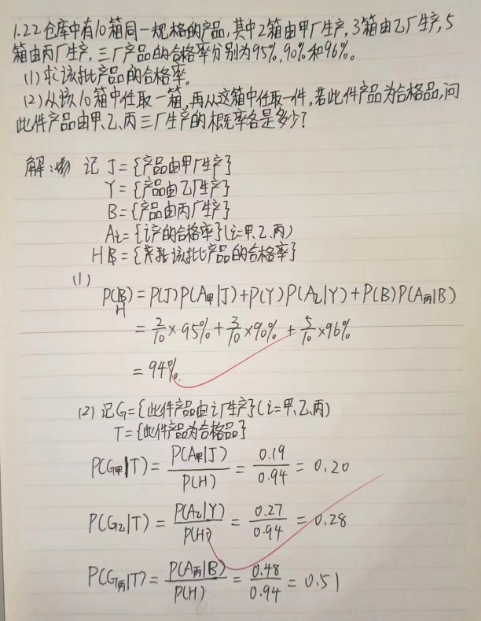 1.22 仓库中有10箱同一规格的产品,其中2箱由甲厂生产,3箱由乙厂生产,5
箱由丙厂生产,三厂产品的合格率分别为95%,90%和96%。
(1)求该批产品的合格率。
(2)从该10箱中任取一箱,再从这箱中任取一件,若此件产品为合格品,问
此件产品由甲、乙、丙三厂生产的概率各是多少?
解: 记 J={产品由甲厂生产}
Y={产品由乙厂生产}
B={产品由丙厂生产}
Ai={i产的合格率}(i=甲、乙、丙)
H={该批产品的合格率}
(1)
P(H)=P(J)P(A甲|J)+P(Y)P(A乙|Y)+P(B)P(A丙|B)
=2/10×95%+3/10×90%+5/10×96%
=94%
(2) 记G={此件产品由i厂生产}(i=甲、乙、丙)
T={此件产品为合格品}
P(G甲|T)=P(A甲|J)/P(H)=0.19/0.94=0.20
P(G乙|T)=P(A乙|Y)/P(H)=0.27/0.94=0.28
P(G丙|T)=P(A丙|B)/P(H)=0.48/0.94=0.51